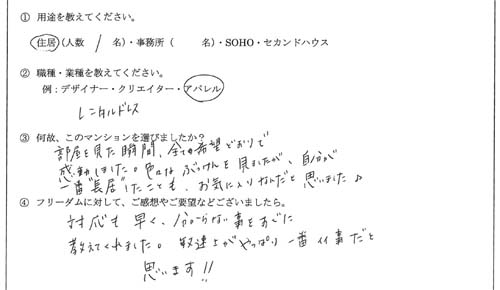 ① 用途を教えてください。
住居(人数 / 名)・事務所( 名)・SOHO・セカンドハウス
② 職種・業種を教えてください。
例:デザイナー・クリエイター・アパレル
レンタルドレス
③ 何故、このマンションを選びましたか?
部屋を見た瞬間、全ての希望どおりで
感動しました。色々なぶっけんを見ましたが、自分が
一番"長居"したことも、お気に入りなんだと思いました♪
④ フリーダムに対して、ご感想やご要望などございましたら。
対応も早く、分からない事をすぐに
教えてくれました。敏速さがやっぱり一番イイ事だと
思います!!